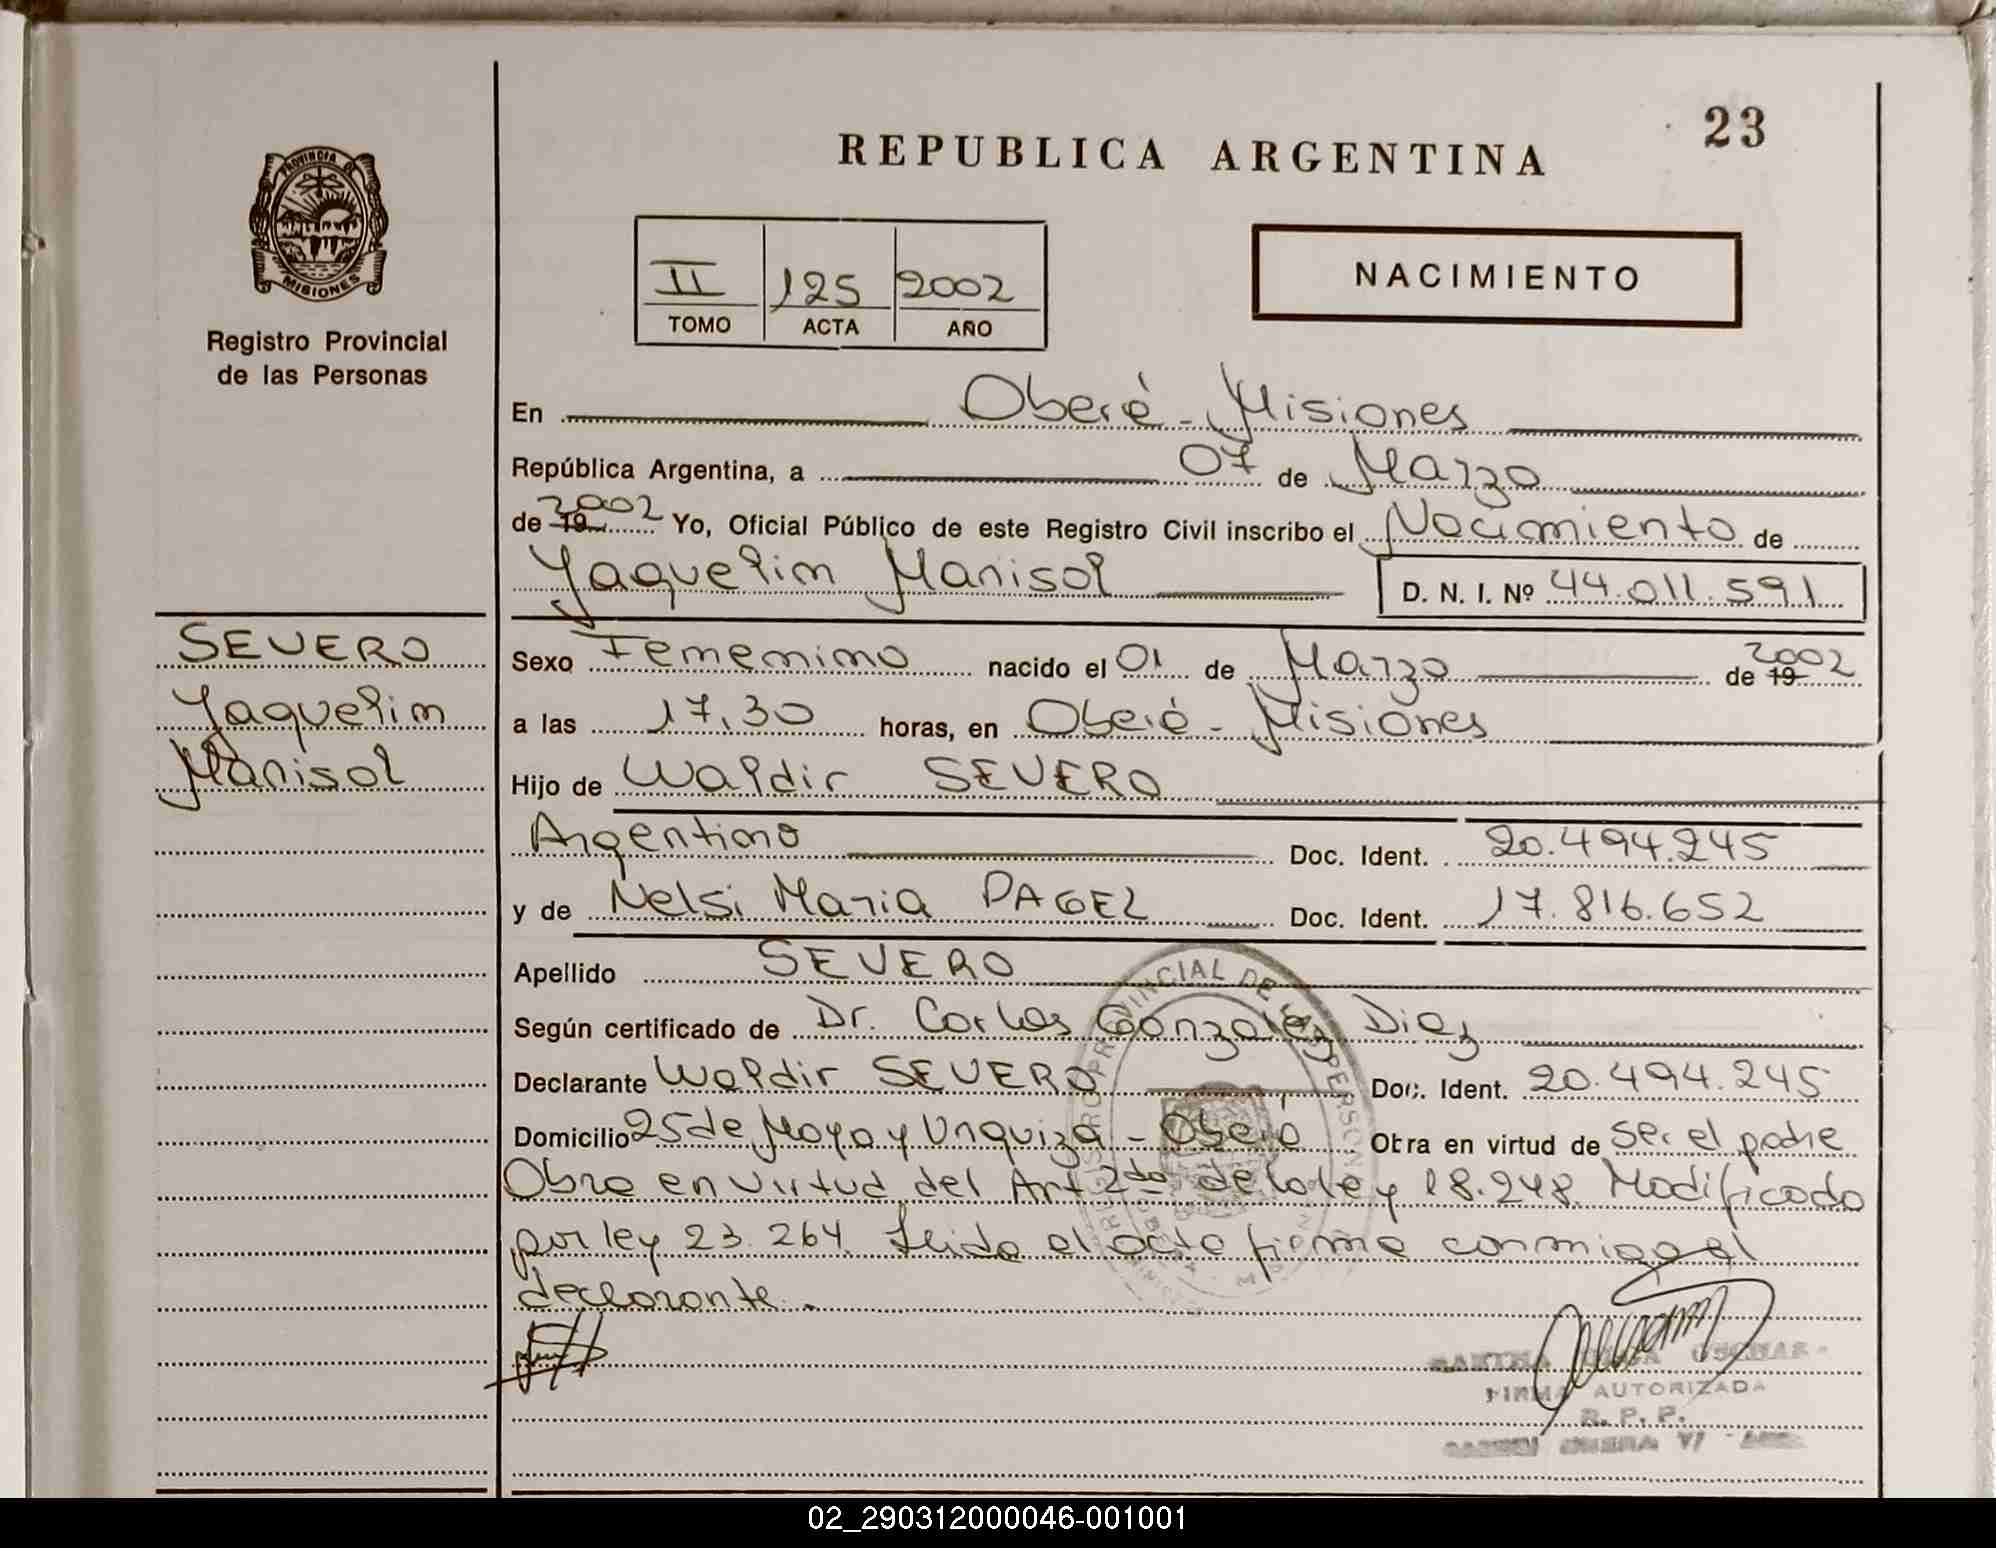 23
REPUBLICA ARGENTINA
PROVINCIA DE
MISIONES
Registro Provincial
de las Personas
II 125 2002
TOMO ACTA AÑO
NACIMIENTO
En Oberá - Misiones
República Argentina, a 07 de Marzo
de 19 2002 Yo, Oficial Público de este Registro Civil inscribo el Nacimiento de
Yaquelim Marisol D. N. I. Nº 44.011.591
SEVERO
Yaquelim
Marisol
Sexo Femenino nacido el 01 de Marzo de 19 2002
a las 17,30 horas, en Oberá - Misiones
Hijo de Waldir SEVERO
Argentino Doc. Ident. 20.494.245
y de Nelsi Maria PAGEL Doc. Ident. 17.816.652
Apellido SEVERO
Según certificado de Dr. Carlos Gonzalez Diez
Declarante Waldir SEVERO Doc. Ident. 20.494.245
Domicilio 25 de Mayo y Urquiza - Oberá Obra en virtud de ser el padre
Obra en virtud del Art 2do de la ley 18.248 Modificado
por ley 23.264. Leida el acta firma conmigo el
declarante.
FIRMA AUTORIZADA
R. P. P.
02_290312000046-001001